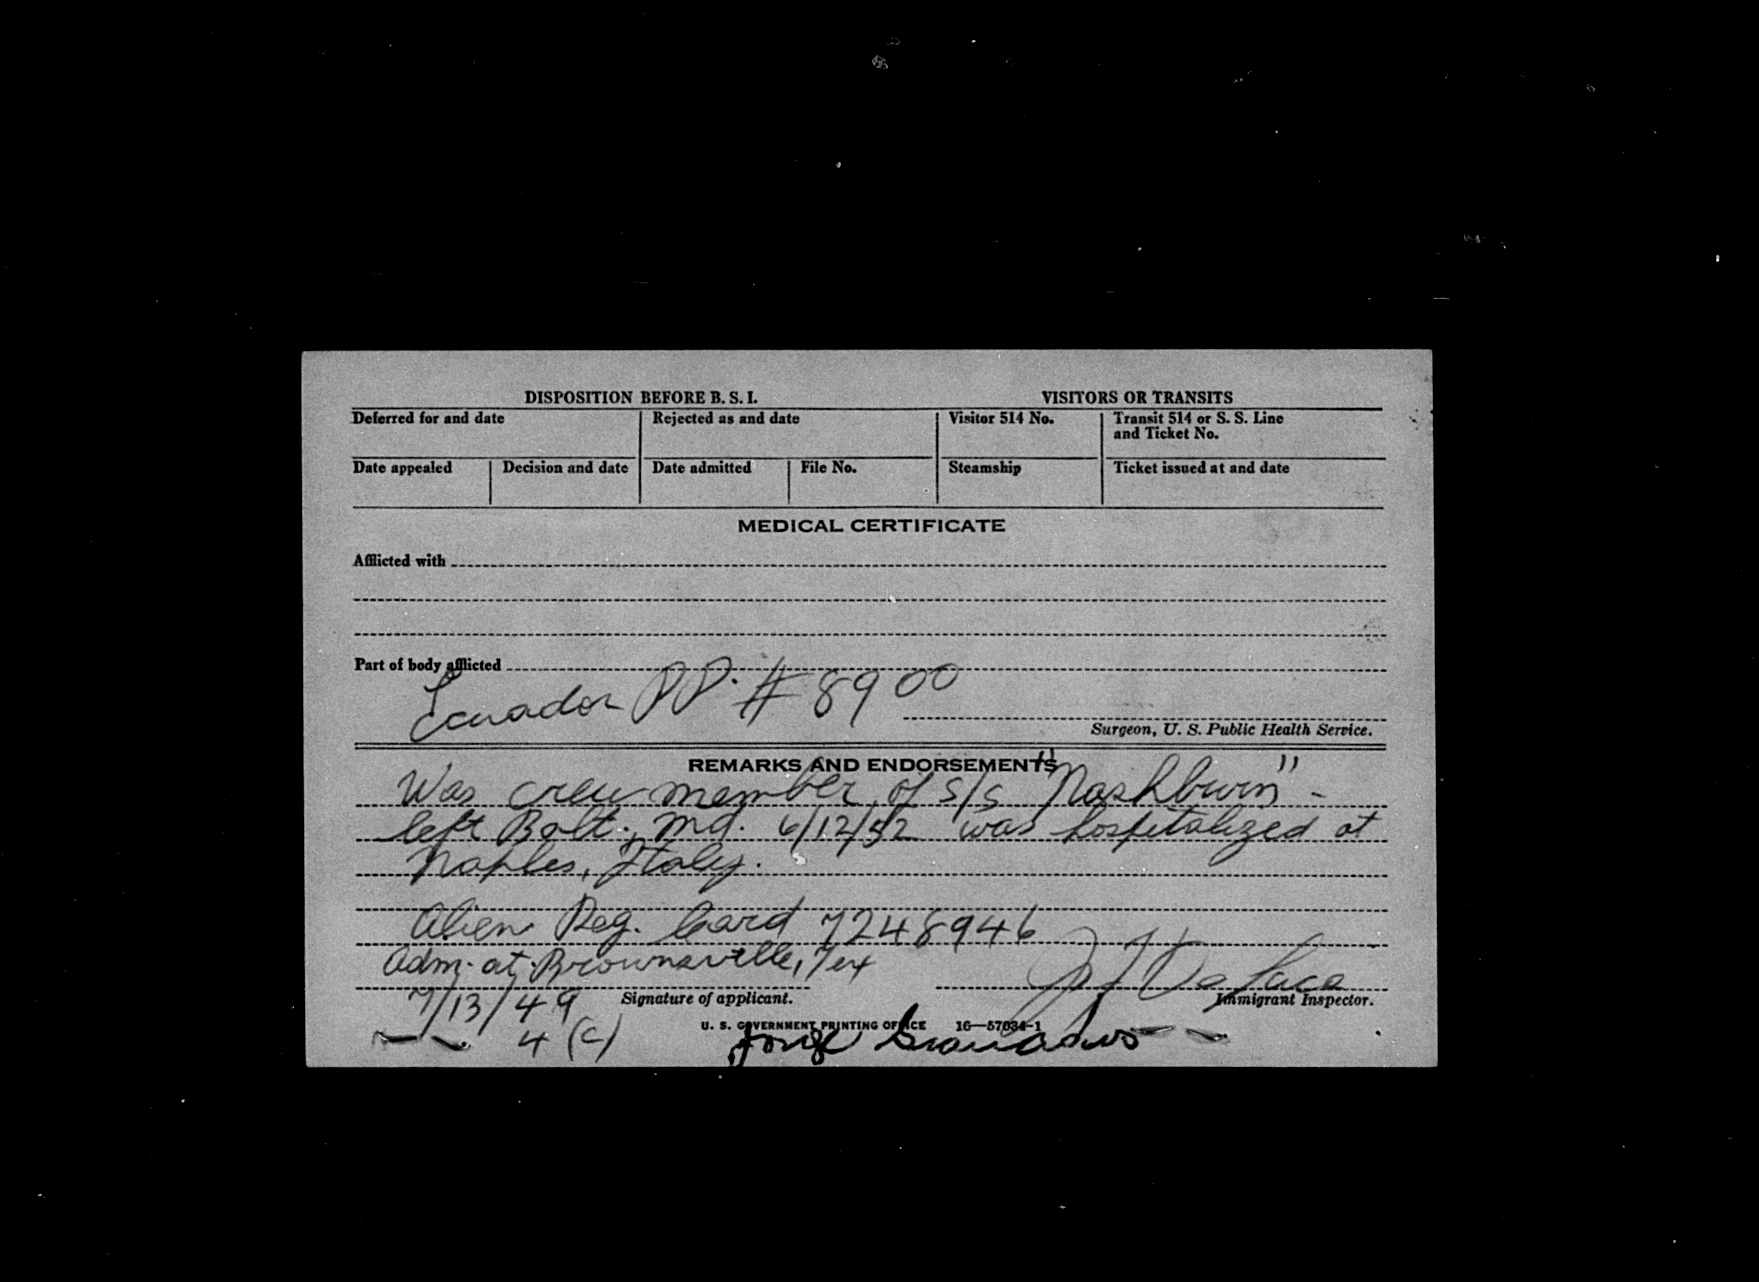 DISPOSITION BEFORE B. S. I. VISITORS OR TRANSITS
Deferred for and date Rejected as and date Visitor 514 No. Transit 514 or S. S. Line and Ticket No.
Date appealed Decision and date Date admitted File No. Steamship Ticket issued at and date
MEDICAL CERTIFICATE
Afflicted with
Part of body afflicted
Ecuador PP. # 8900
Surgeon, U. S. Public Health Service.
REMARKS AND ENDORSEMENTS
Was crew member of S/S "Mashburn" -
left Balt., Md. 6/12/52 was hospitalized at
Naples, Italy.
Alien Reg. Card 7248946
Adm. at Brownsville, Tex
7/13/49 Signature of applicant. Immigrant Inspector.
4 (c)
U. S. GOVERNMENT PRINTING OFFICE 16—57034-1
Jorge